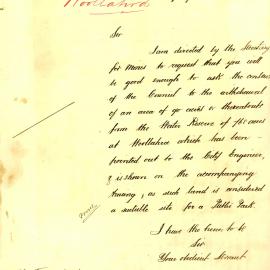 Woollahra
Sir
I am directed by the Secretary
for Mines to request that you will
be good enough to ask the consent
of the Council to the withdrawal
of an area of 90 acres or thereabouts
from the Water Reserve of 760 acres
at Woollahra which has been
pointed out to the City Engineer,
& is shown on the accompanying
tracing, as such land is considered
a suitable site for a Public Park.
I have the honor to be
Sir
Your obedient Servant